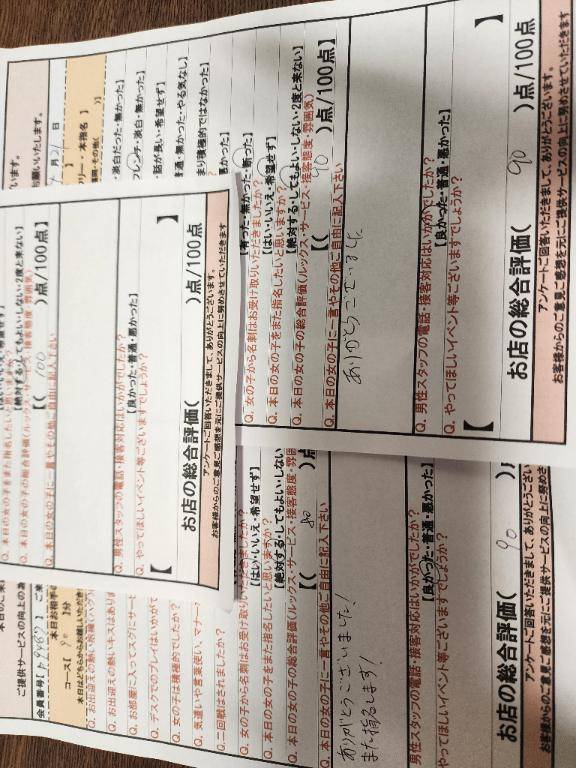 月21日
フリー・本指名
・淡白だった・無かった】
フレンチ・淡白・無かった】
・話が長い・希望せず】
普通・無かった・やる気なし】
まり積極的ではなかった】
Q. 女の子から名刺はお受け取りいただきましたか?
【有った・無かった・断った】
【はい・いいえ・希望せず】
Q. 本日の女の子をまた指名したいと思いますか?
【絶対する・してもよい・しない・2度と来ない】
Q. 本日の女の子の総合評価(ルックス・サービス・接客態度・雰囲気)
【( 90 )点/100点】
Q. 本日の女の子に一言やその他ご自由に記入下さい
ありがとうございました
Q. 男性スタッフの電話・接客対応はいかがでしたか?
【良かった・普通・悪かった】
Q. やってほしいイベント等ございますでしょうか?
【 】
お店の総合評価( 90 )点/100点
アンケートご回答いただきまして、ありがとうございます。
お客様からのご意見ご感想を元にご提供サービスの向上に努めさせていただきます
【絶対する・してもよい・しない・2度と来ない】
Q. 本日の女の子の総合評価(ルックス・サービス・接客態度・雰囲気)
【( 100 )点/100点】
Q. 本日の女の子に一言やその他ご自由に記入下さい
Q. 男性スタッフの電話・接客対応はいかがでしたか?
【良かった・普通・悪かった】
Q. やってほしいイベント等ございますでしょうか?
【 】
お店の総合評価( )点/100点
アンケートご回答いただきまして、ありがとうございます。
お客様からのご意見ご感想を元にご提供サービスの向上に努めさせていただきます
ご提供サービスの向上の為
会員番号【
コース【 90 】分
Q. お出迎えの熱いキスはあり
Q. お部屋に入ってスグにサービ
Q. デスクでのプレイはいかがで
Q. 女の子は積極的でしたか?
Q. 気遣いや言葉使い、マナー
Q. 二回戦はされましたか?
Q. 女の子から名刺はお受け取りいただきましたか?
【はい・いいえ・希望せず】
Q. 本日の女の子をまた指名したいと思いますか?
【絶対する・してもよい・しない
Q. 本日の女の子の総合評価(ルックス・サービス・接客態度・雰囲
【(
Q. 本日の女の子に一言やその他ご自由に記入下さい
ありがとうございました!
また指名します!
男性スタッフの電話・接客対応はいかがでしたか?
【良かった・普通・悪かった】
やってほしいイベント等ございますでしょうか?
お店の総合評価( 90 )点
アンケートご回答いただきまして、ありがとうござい
お客様からのご意見ご感想を元にご提供サービスの向上に努めさ